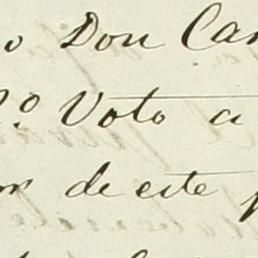 o Don Car
2.º Voto a
or de este p